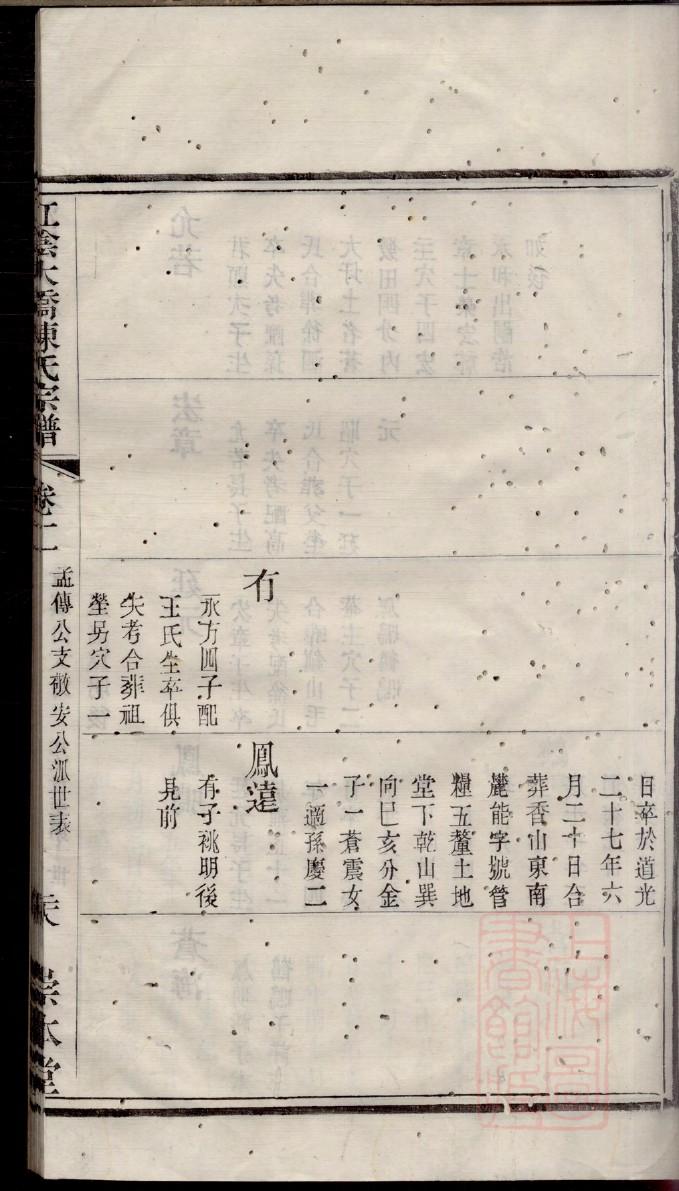 日卒於道光
二十七年六
月二十日合
葬香山東南
麓能字號管
糧五釐土地
堂下乾山巽
向巳亥分金
子一蒼震女
一適孫慶二
有
鳳遠
永方四子配
王氏生卒俱
失考合葬祖
塋另穴子一
有子祧明後
見前
江陰大橋陳氏宗譜
卷二
孟傳公支敬安公派世表
崇本堂
上海圖書館藏